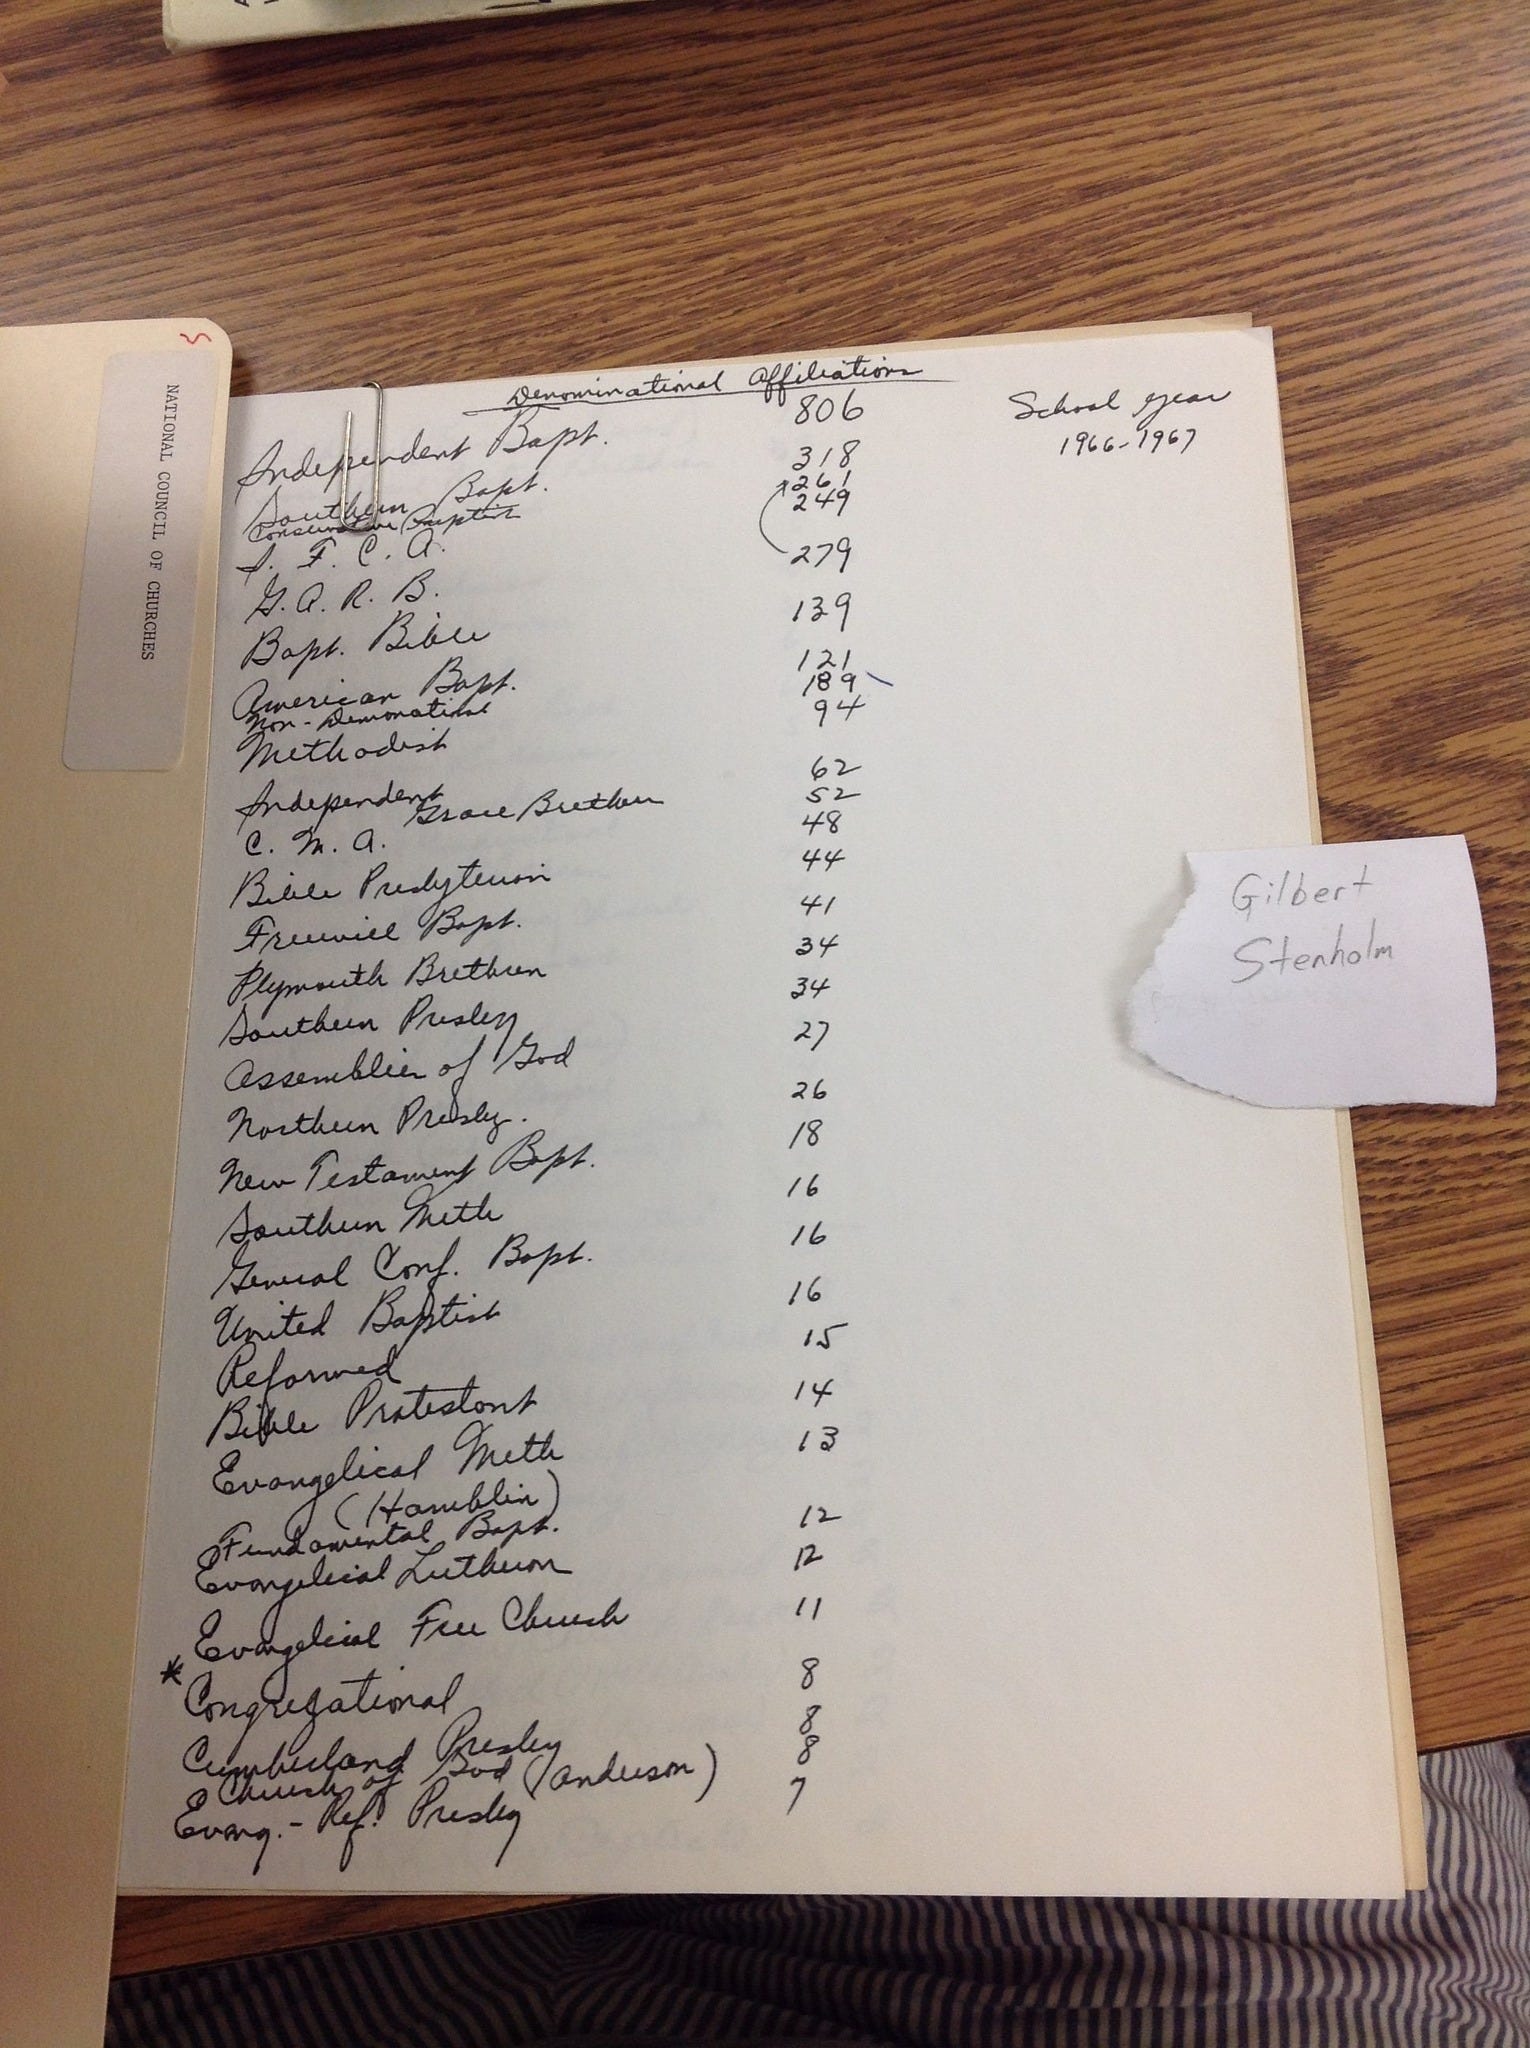 NATIONAL COUNCIL OF CHURCHES
Denominational Affiliations
School year
1966-1967
Independent Bapt. 806
Southern Bapt. 318
Conservative Baptist 261
I. F. C. A. 249
G. A. R. B. 279
Bapt. Bible 139
American Bapt. 121
Non-Demonational 189
Methodist 94
Independent 62
Grace Brethren 52
C. M. A. 48
Bible Presbyterian 44
Freewill Bapt. 41
Plymouth Brethren 34
Southern Presby 34
Assemblies of God 27
Northern Presby. 26
New Testament Bapt. 18
Southern Meth 16
General Conf. Bapt. 16
United Baptist 16
Reformed 15
Bible Protestant 14
Evangelical Meth 13
(Hamblin)
Fundamental Bapt. 12
Evangelical Lutheran 12
Evangelical Free Church 11
* Congregational 8
Cumberland Presby 8
Church of God (Anderson) 8
Evang.- Ref. Presby 7
Gilbert
Stenholm